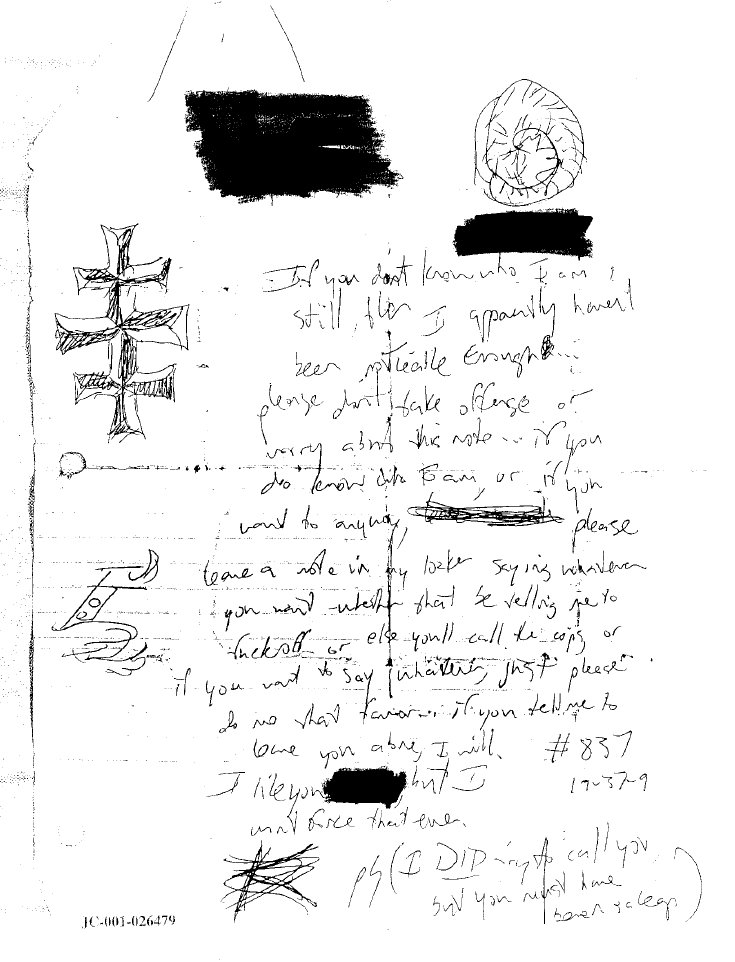 If you dont know who I am,
still, then I apparently havent
been noticable enough...
please don't take offense or
worry about this note... if you
do know who I am, or if you
want to anyway, please
leave a note in my locker saying whatever
you want whether that be telling me to
fuck off or else you'll call the cops or
if you want to say whatever, just please
do me that favor... if you tell me to
leave you alone, I will. #837
I like you, but I 19-37-9
wont force that ever.
ps (I DID try to call you,
but you must have
been asleep)
JC-001-026479